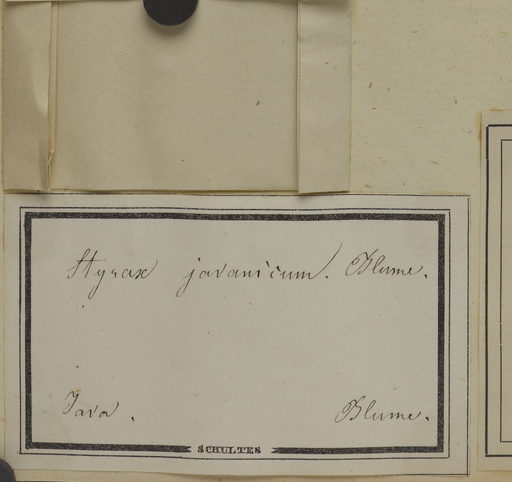 Styrax javanicum. Blume.
Java. Blume.
SCHULTES